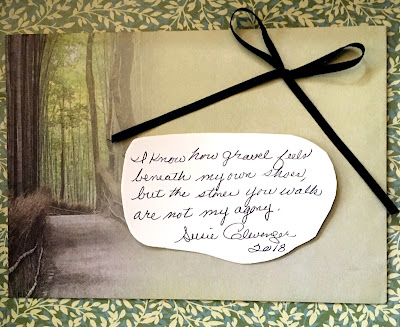 I know how gravel feels
beneath my own shoes,
but the stones you walk
are not my agony.
Susie Clevenger
2018